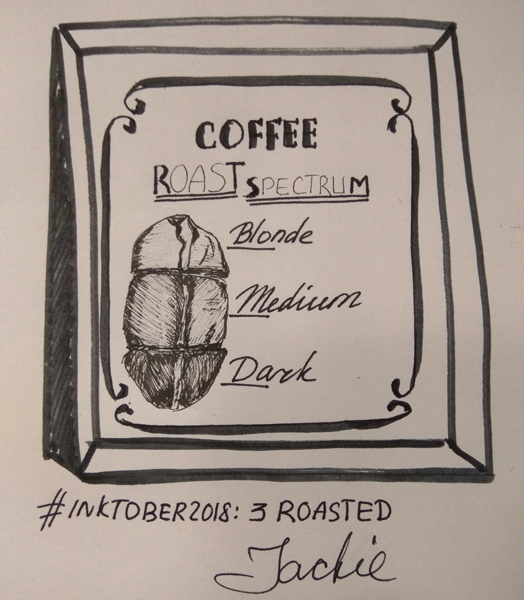 COFFEE
ROAST SPECTRUM
Blonde
Medium
Dark
#INKTOBER2018: 3 ROASTED
Jackie